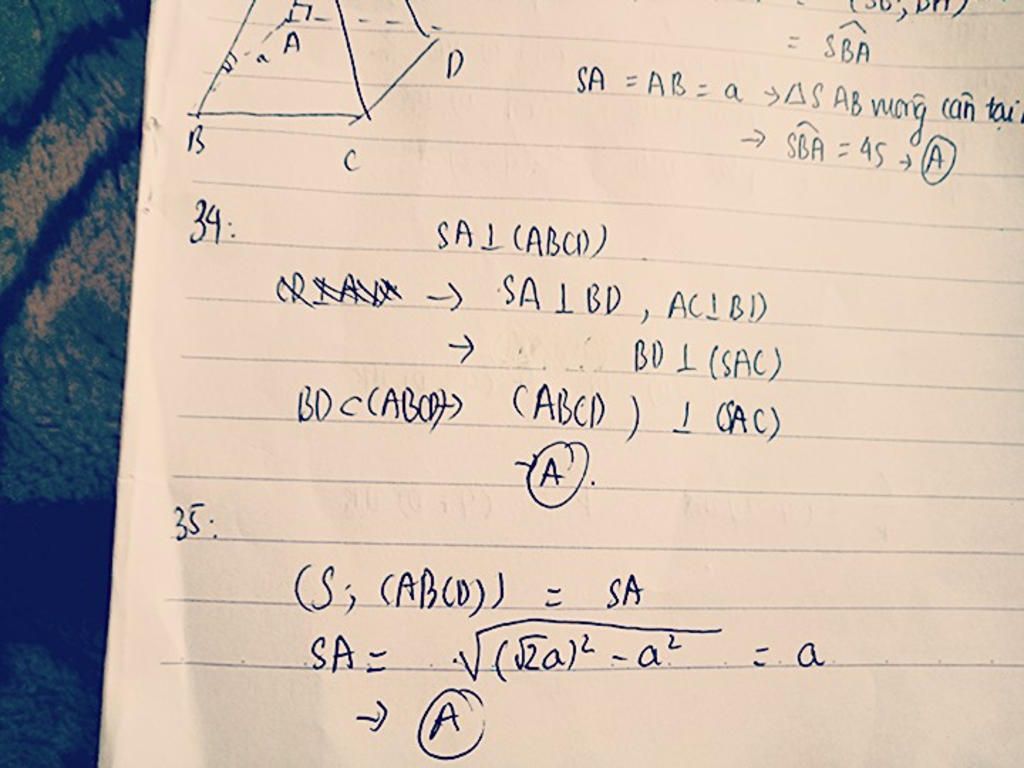 (SB; BA)
= SBA
A
a
D
SA = AB = a → ΔSAB vuông cân tại
B
→ SBA = 45 → A
C
34:
SA ⊥ (ABCD)
→ SA ⊥ BD, AC ⊥ BD
→ BD ⊥ (SAC)
BD ⊂ (ABCD) → (ABCD) ⊥ (SAC)
→ A.
35:
(S; (ABCD)) = SA
SA = √((√2a)² - a²) = a
→ A